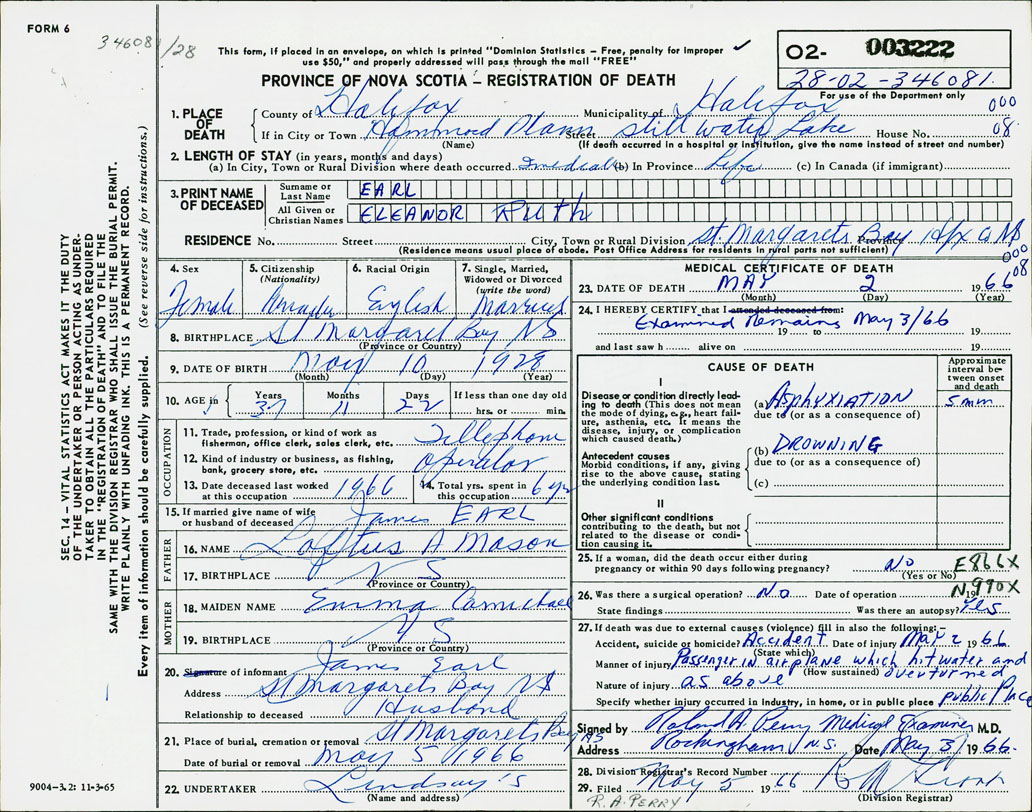 FORM 6
346081/28
This form, if placed in an envelope, on which is printed "Dominion Statistics – Free, penalty for improper
use $50," and properly addressed will pass through the mail "FREE"
PROVINCE OF NOVA SCOTIA – REGISTRATION OF DEATH
02- 003222
28-02-346081.
For use of the Department only
000
08.
1. PLACE OF DEATH
County of Halifax Municipality of Halifax
If in City or Town Hammond Plains Street Still water Lake House No.
(Name) (If death occurred in a hospital or institution, give the name instead of street and number)
2. LENGTH OF STAY (in years, months and days)
(a) In City, Town or Rural Division where death occurred (b) In Province Life (c) In Canada (if immigrant)
3. PRINT NAME OF DECEASED
Surname or Last Name EARL
All Given or Christian Names ELEANOR Ruth
RESIDENCE No. Street City, Town or Rural Division St. Margarets Bay Province Hfx Co NS
(Residence means usual place of abode. Post Office Address for residents in rural parts not sufficient)
000
08
4. Sex Female
5. Citizenship (Nationality) Canadian
6. Racial Origin English
7. Single, Married, Widowed or Divorced (write the word) Married
8. BIRTHPLACE St Margaret Bay NS
(Province or Country)
9. DATE OF BIRTH May 10 1928
(Month) (Day) (Year)
10. AGE in Years 37 Months 11 Days 22 If less than one day old hrs. or min.
OCCUPATION
11. Trade, profession, or kind of work as fisherman, office clerk, sales clerk, etc. Tellephone
12. Kind of industry or business, as fishing, bank, grocery store, etc. Operator
13. Date deceased last worked at this occupation 1966
14. Total yrs. spent in this occupation 6 yrs
15. If married give name of wife or husband of deceased James EARL
FATHER
16. NAME Loftus A Mason
17. BIRTHPLACE N S
(Province or Country)
MOTHER
18. MAIDEN NAME Emma Carmichael
19. BIRTHPLACE N S
(Province or Country)
20. Signature of informant James Earl
Address St Margarets Bay NS
Relationship to deceased Husband
21. Place of burial, cremation or removal St Margarets Bay NS
Date of burial or removal May 5 1966
22. UNDERTAKER Lindsay's
(Name and address)
MEDICAL CERTIFICATE OF DEATH
23. DATE OF DEATH MAY 2 1966
(Month) (Day) (Year)
24. I HEREBY CERTIFY that I attended deceased from:
Examined Remains May 3/66 19 to 19
and last saw h alive on 19
CAUSE OF DEATH
Approximate interval between onset and death
I
Disease or condition directly leading to death (This does not mean the mode of dying, e.g., heart failure, asthenia, etc. It means the disease, injury, or complication which caused death.)
(a) ASPHYXIATION 5 min
due to (or as a consequence of)
Antecedent causes
Morbid conditions, if any, giving rise to the above cause, stating the underlying condition last.
(b) DROWNING
due to (or as a consequence of)
(c)
II
Other significant conditions contributing to the death, but not related to the disease or condition causing it.
25. If a woman, did the death occur either during pregnancy or within 90 days following pregnancy? No
(Yes or No)
E866X
N990X
26. Was there a surgical operation? No Date of operation 19
State findings Was there an autopsy? Yes
27. If death was due to external causes (violence) fill in also the following:–
Accident, suicide or homicide? Accident Date of injury May 2 1966
(State which)
Manner of injury Passenger in airplane which hit water and overturned
(How sustained)
Nature of injury as above
Specify whether injury occurred in Industry, in home, or in public place public Place
Signed by Roland A. Perry Medical Examiner M.D.
Address Rockingham, N.S. Date May 3 1966.
28. Division Registrar's Record Number
29. Filed May 5 1966
(Division Registrar)
R.A. PERRY
SEC. 14 – VITAL STATISTICS ACT MAKES IT THE DUTY
OF THE UNDERTAKER OR PERSON ACTING AS UNDER-
TAKER TO OBTAIN ALL THE PARTICULARS REQUIRED
IN THE "REGISTRATION OF DEATH" AND TO FILE THE
SAME WITH THE DIVISION REGISTRAR WHO SHALL ISSUE THE BURIAL PERMIT.
WRITE PLAINLY WITH UNFADING INK. THIS IS A PERMANENT RECORD.
Every item of information should be carefully supplied. (See reverse side for instructions.)
9004-3.2: 11-3-65